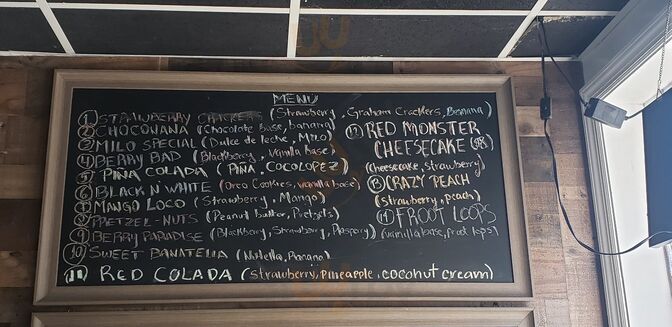 MENÚ
① STRAWBERRY CRACKERS (Strawberry, Graham Crackers, Banana)
② CHOCONANA (Chocolate base, banana)
③ MILO SPECIAL (Dulce de leche, Milo)
④ BERRY BAD (Blackberry, Vanilla base)
⑤ PIÑA COLADA (PIÑA, COCOLOPEZ)
⑥ BLACK N' WHITE (Oreo Cookies, vanilla base)
⑦ MANGO LOCO (Strawberry, Mango)
⑧ PRETZEL-NUTS (Peanut butter, Pretzels)
⑨ BERRY PARADISE (Blackberry, Strawberry,
⑩ SWEET BANATELLA (Nutella, Banano)
⑪ RED COLADA (Strawberry, pineapple, coconut cream)
⑫ RED MONSTER
CHEESECAKE
(cheesecake, strawberry)
⑬ CRAZY PEACH
(strawberry, peach)
⑭ FROOT LOOPS
(vanilla base, froot lops)